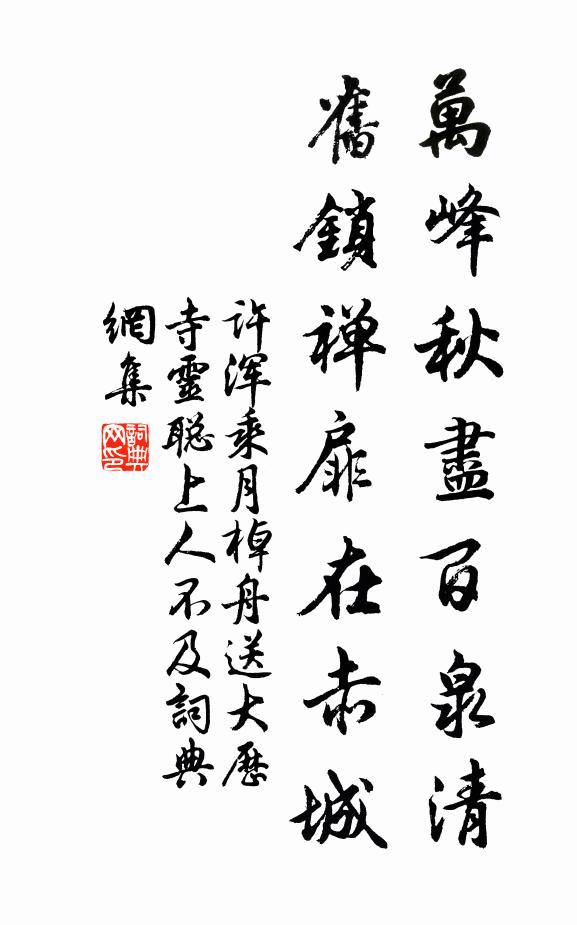 萬峰秋盡百泉清
舊鎖禅扉在赤城
許浑乘月棹舟送大歷
寺靈聪上人不及詞典
網集
詞典網印